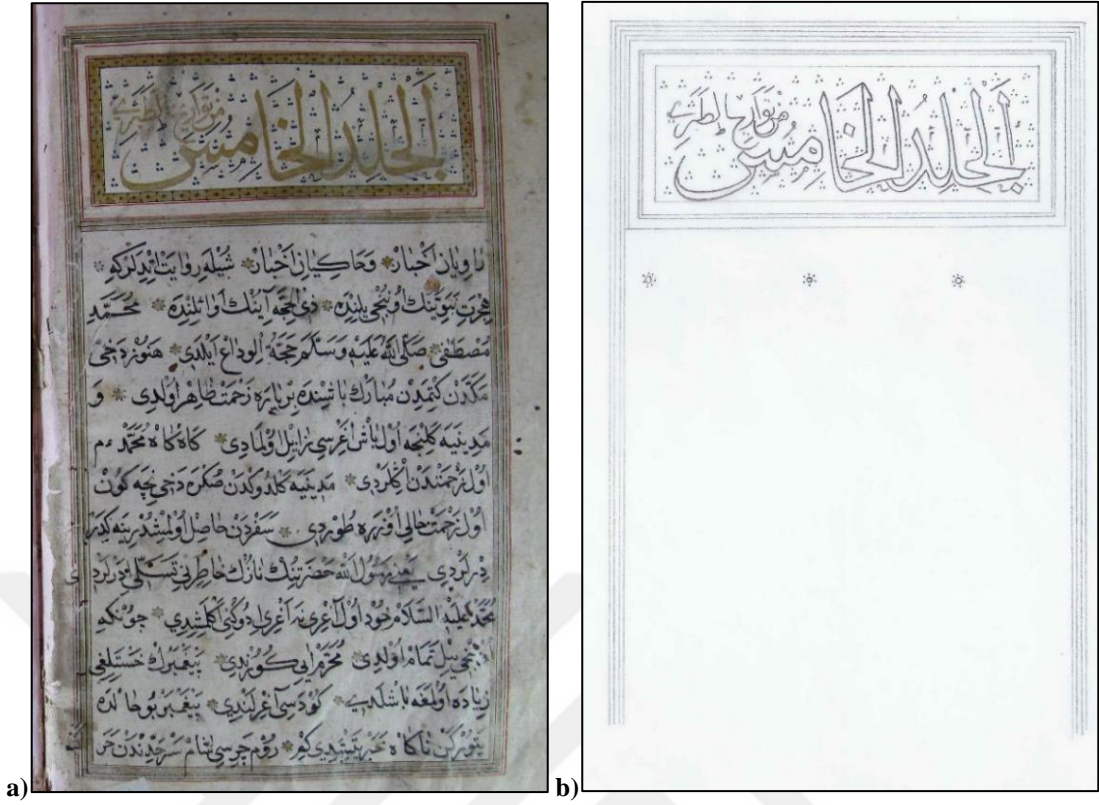 اَلْجِلْدُ الْخَامِسُ من تواريخ الطبري
راويان اخبار وحاكيان اخبار شيله روايت اتديلركه
هجرت نبوتنك اوننجى يلنده ذى الحجه آينك اوائلنده محمد
مصطفى صلى الله عليه وسلم حجة الوداع ايلدى هنوز دخى
مكدن كتمدن مبارك باشنده بر پاره زحمت ظاهر اولدى و
مدينيه كلنجه اول باش اغرسى زايل اولمادى كاه كاه محمد م
اول زحمتدن اكلردى مدينيه كلدوكدن صكره دخى نچه كون
اول زحمت حالى اوزره طوردى سفردن حاصل اولمشدر ينه كيدر
درلردى يعنى رسول الله حضرتنك نازك خاطرنى تسلى
محمد عليه السلام خود اول آغرى نه آغرى ادوكنى اكلمشدى چونكه
اوننجى ييل تمام اولدى محرم ايى كورندى پيغمبرك خستلغى
زياده اولمغه باشلدى كودسى آغرلندى پيغمبر بو حالده
ناكاه خبر يتشدى كم روم چرسى شام سرحدندن
اَلْجِلْدُ الْخَامِسُ من تواريخ الطبري
a)
b)